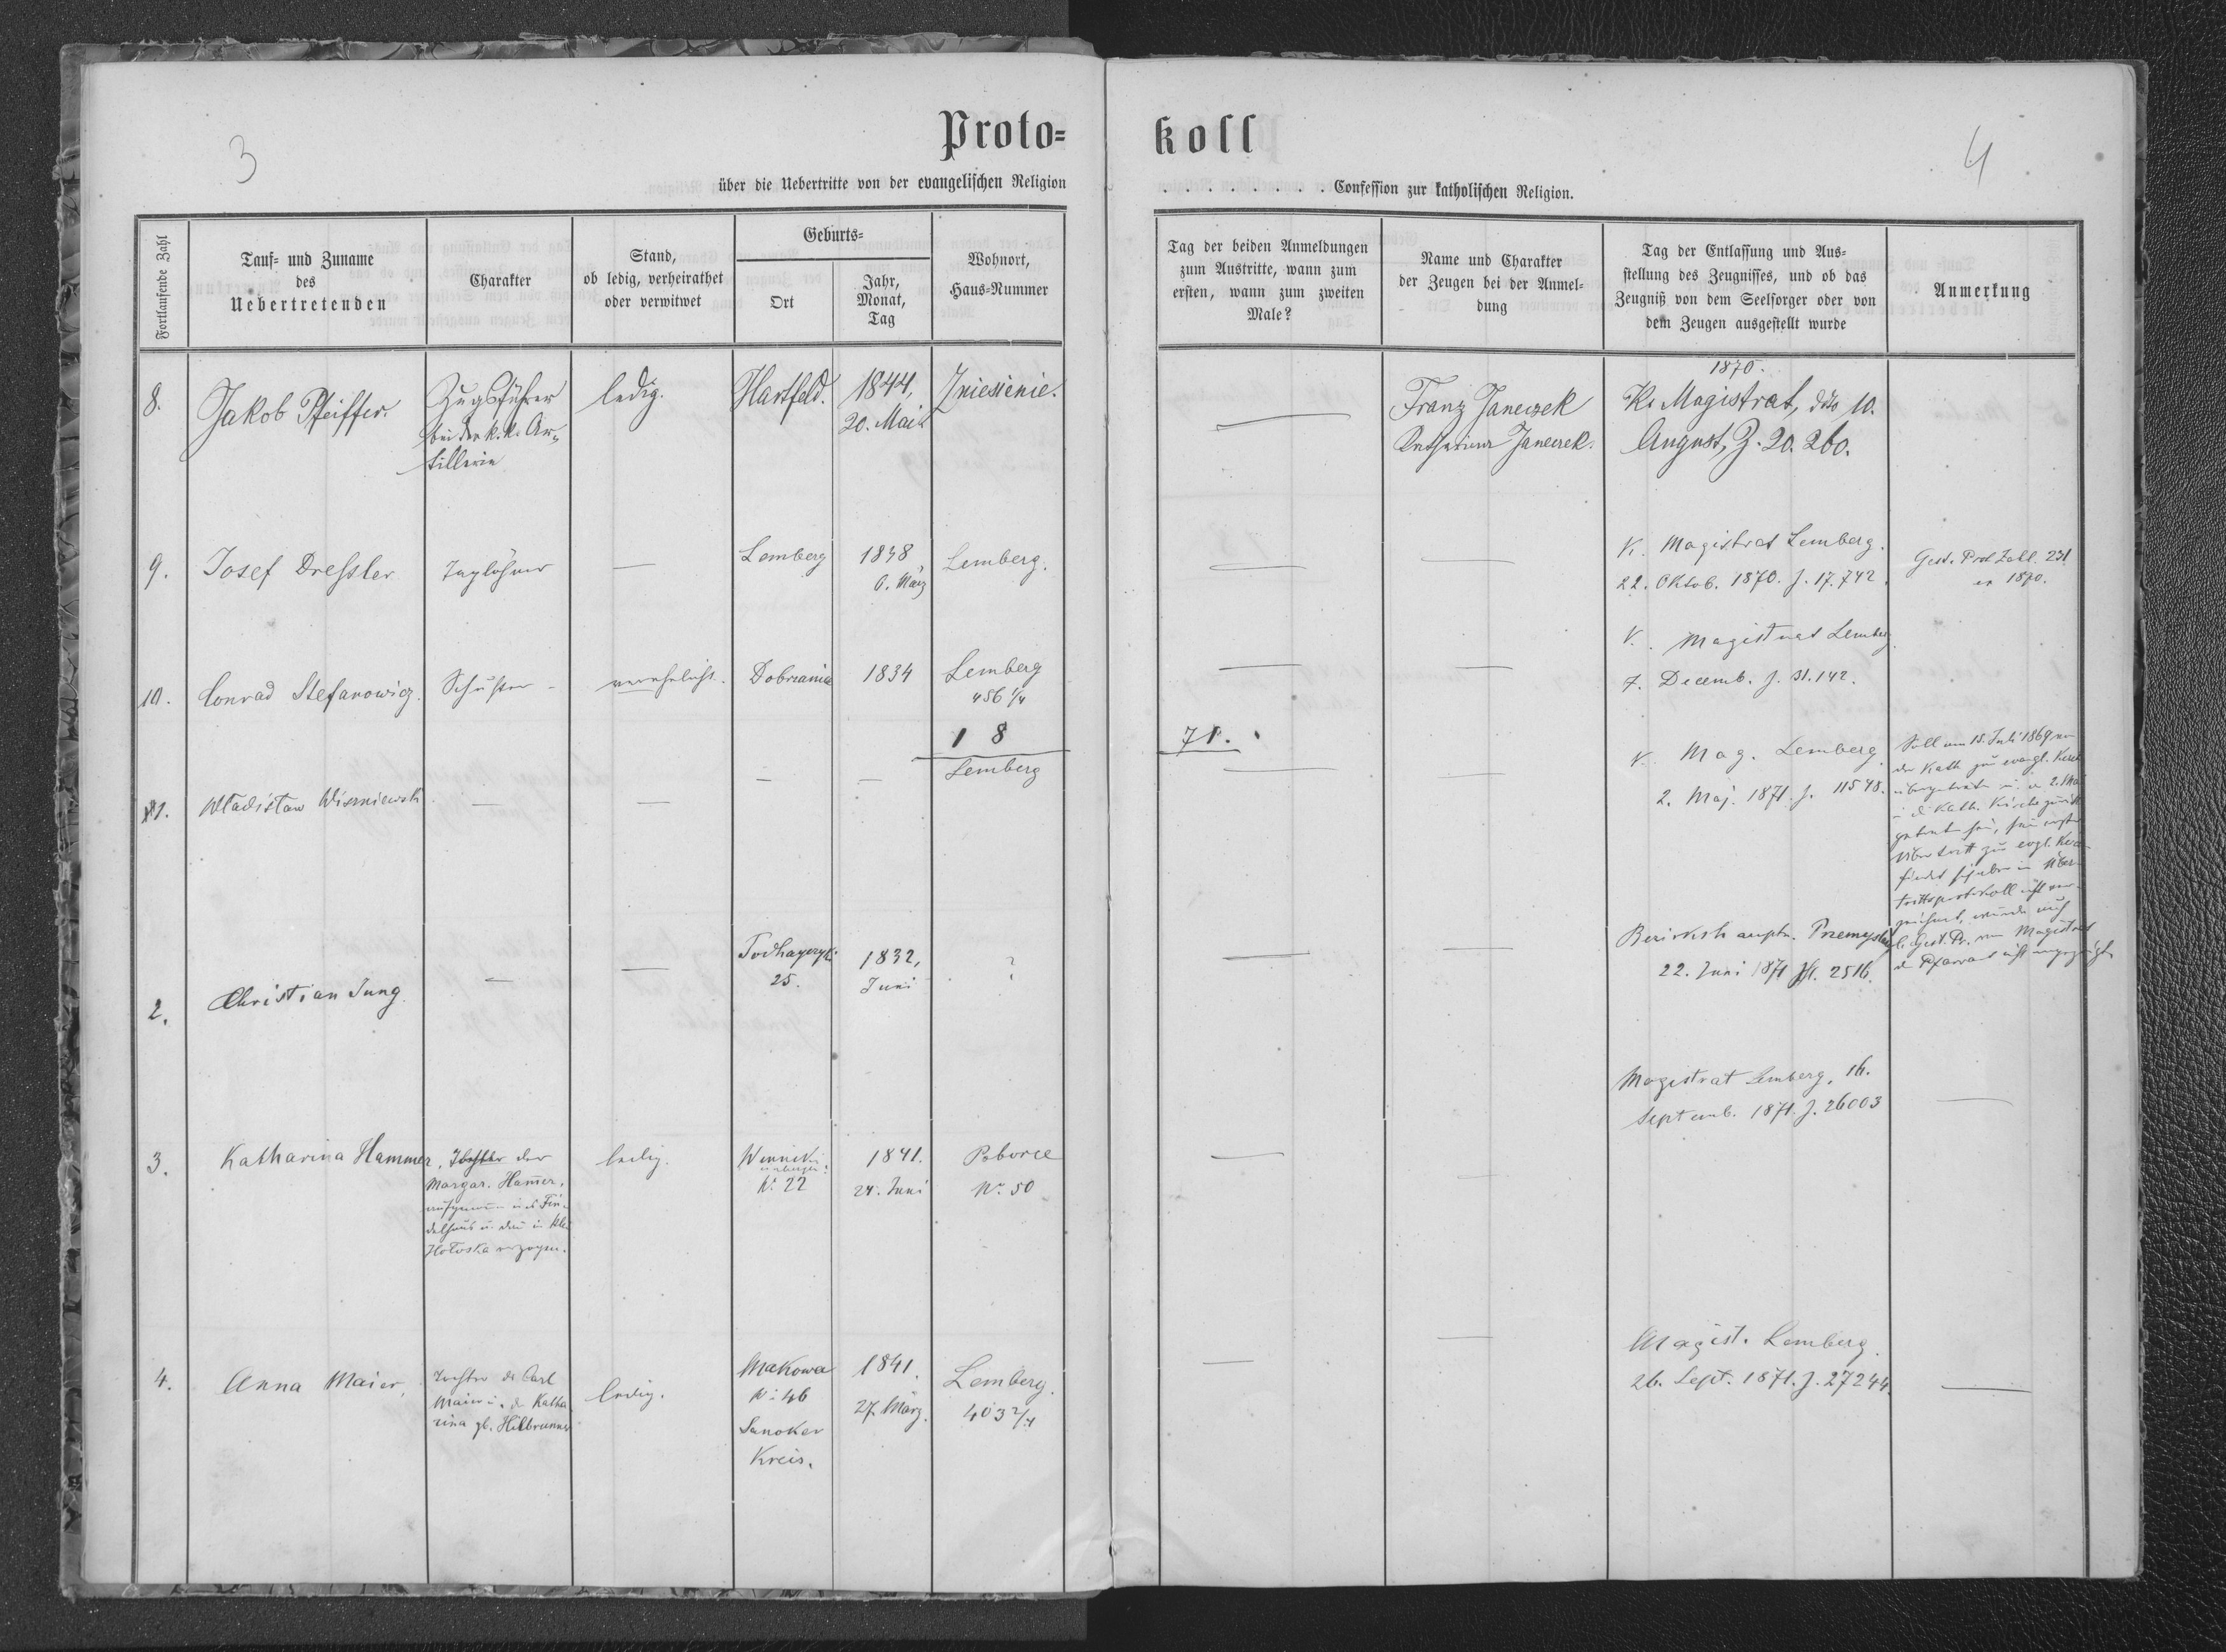 3
Proto=
über die Uebertritte von der evangelischen Religion
Fortlaufende Zahl
Tauf= und Zuname
des
Uebertretenden
Charakter
Stand,
ob ledig, verheirathet
oder verwitwet
Geburts=
Ort
Jahr,
Monat,
Tag
Wohnort,
Haus=Nummer
8.
Jakob Pfeiffer.
Zugsführer
bei der k.k. Ar=
tillerie
ledig.
Hartfeld.
1844,
20. Mai
Zniesienie.
9.
Josef Dreßler
Taglöhner
—
Lemberg
1838
6. März
Lemberg.
10.
Conrad Stefanowicz.
Schuster
verehelicht.
Dobrzanica
1834
Lemberg
456 1/4
18
11.
Władisław Wiszniewski
—
—
—
—
Lemberg
2.
Christian Jung
—
—
25.
1832,
Juni
?
3.
Katharina Hammer,
Tochter der
Margar. Ham̄er,
ledig.
Winniki
N: 22
1841.
24. Juni
N: 50
4.
Anna Maier,
Tochter des Carl
Maier u. der Katha
rina gb. Hilbrunner
ledig.
Makowa
N: 46
Sanoker
Kreis.
1841.
27. März.
Lemberg.
403 2/4
4
koll
. . . . . . . . . Confession zur katholischen Religion.
Tag der beiden Anmeldungen
zum Austritte, wann zum
ersten, wann zum zweiten
Male?
Name und Charakter
der Zeugen bei der Anmel=
dung
Tag der Entlassung und Aus=
stellung des Zeugnisses, und ob das
Zeugniß von dem Seelsorger oder von
dem Zeugen ausgestellt wurde
Anmerkung
—
Franz Janeczek
Katharina Janeczek.
1870.
K. Magistrat, ddo 10.
August, Z. 20.260.
—
—
K. Magistrat Lemberg.
22. Oktob. 1870. Z. 17.742.
Gest. Prot. Zahl. 231
ex 1870.
—
—
K. Magistrat Lemberg
7. Decemb. Z. 31.142.
71.
—
—
K. Mag. Lemberg
2. Maj. 1871. Z. 11548.
Soll am 15. Juli 1869 von
der Kath. zur evangl. Kirche
übergetreten
in d. Kath. Kirche zurück
getreten sein, sein erster
Übertritt zur evgl. Kirche
findet sich aber im Über
trittsprotokoll nicht ver
zeichnet, wurde auch
l. Gest. Pr. vom Magistrat
dem Pfarramt nicht angezeigt.
—
—
Bezirkshauptm. Przemyslany
22. Juni 1871 Zl. 2516.
—
—
Magistrat Lemberg, 16.
Septemb. 1871. Z. 26003
—
—
—
Magist. Lemberg.
26. Sept. 1871. Z. 27244.
—